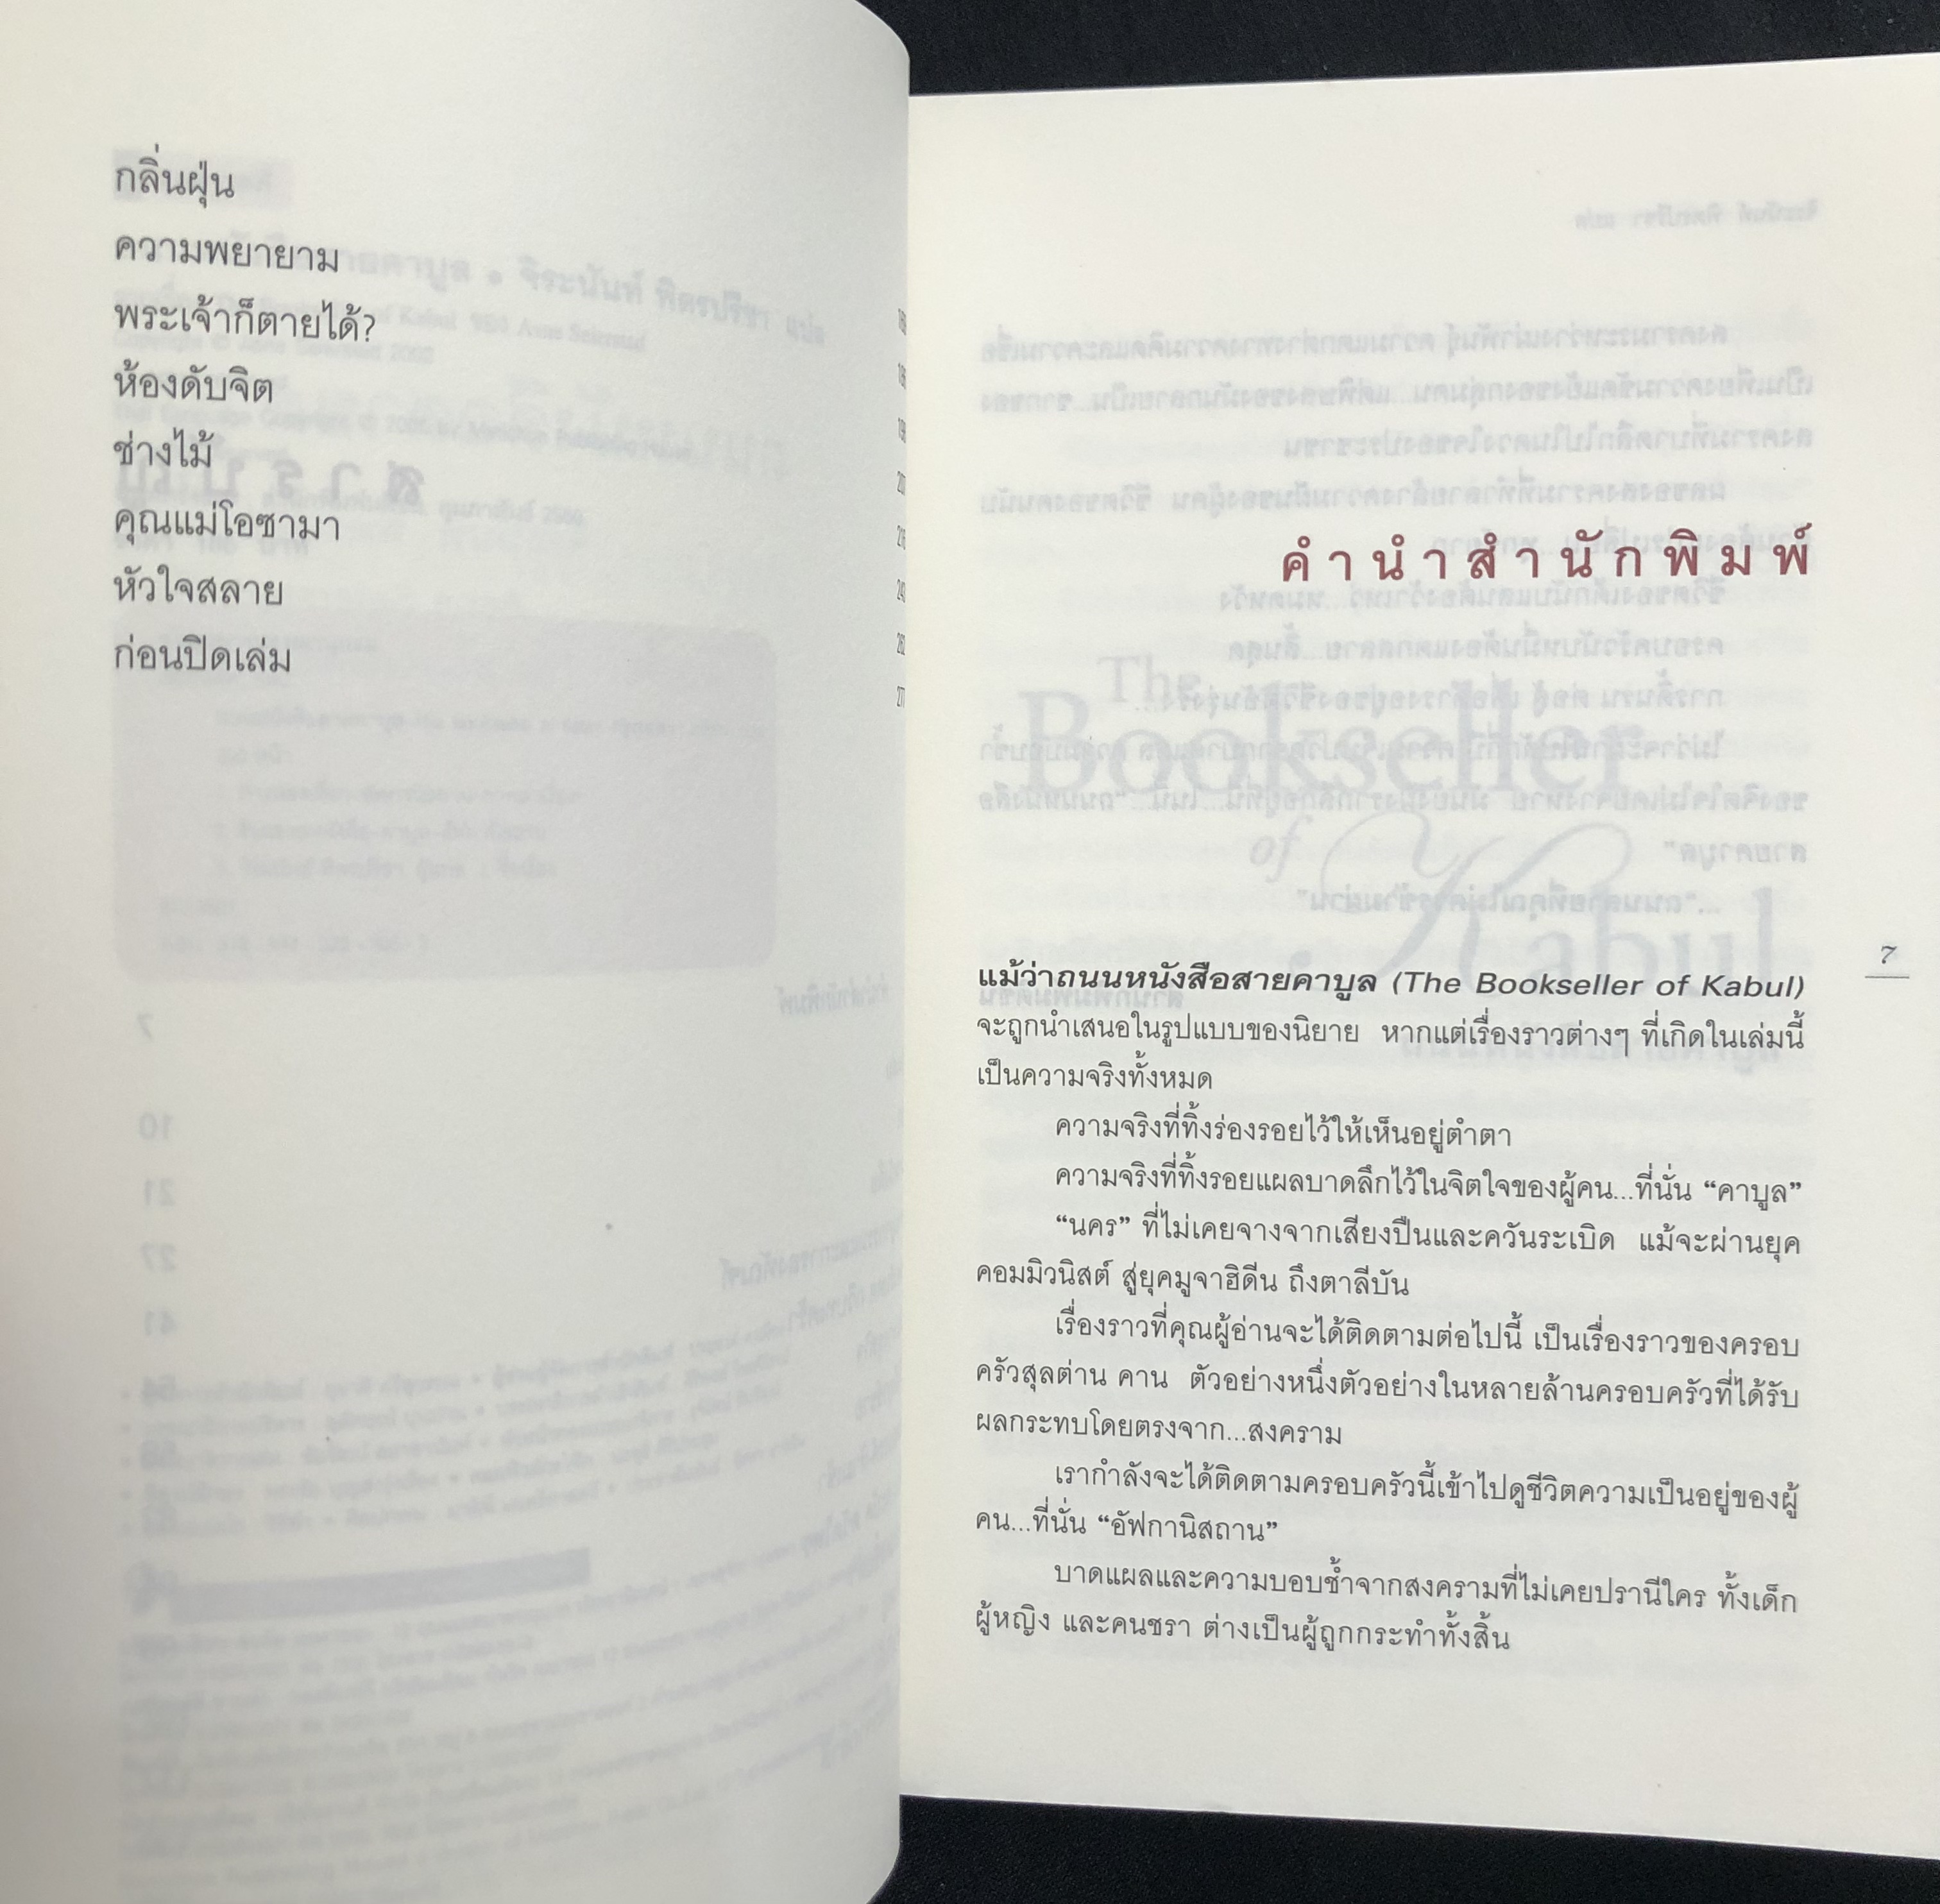 กลิ่นฝุ่น
ความพยายาม
พระเจ้าก็ตายได้?
ห้องดับจิต
ช่างไม้
คุณแม่โอซามา
หัวใจสลาย
ก่อนปิดเล่ม
คำนำสำนักพิมพ์
The
Bookseller
of
Kabul
7
แม้ว่าถนนหนังสือสายคาบูล (The Bookseller of Kabul)
จะถูกนำเสนอในรูปแบบของนิยาย หากแต่เรื่องราวต่างๆ ที่เกิดในเล่มนี้
เป็นความจริงทั้งหมด
ความจริงที่ทิ้งร่องรอยไว้ให้เห็นอยู่ตำตา
ความจริงที่ทิ้งรอยแผลบาดลึกไว้ในจิตใจของผู้คน...ที่นั่น “คาบูล”
“นคร” ที่ไม่เคยจางจากเสียงปืนและควันระเบิด แม้จะผ่านยุค
คอมมิวนิสต์ สู่ยุคมูจาฮิดีน ถึงตาลีบัน
เรื่องราวที่คุณผู้อ่านจะได้ติดตามต่อไปนี้ เป็นเรื่องราวของครอบ
ครัวสุลต่าน คาน ตัวอย่างหนึ่งตัวอย่างในหลายล้านครอบครัวที่ได้รับ
ผลกระทบโดยตรงจาก...สงคราม
เรากำลังจะได้ติดตามครอบครัวนี้เข้าไปดูชีวิตความเป็นอยู่ของผู้
คน...ที่นั่น “อัฟกานิสถาน”
บาดแผลและความบอบช้ำจากสงครามที่ไม่เคยปรานีใคร ทั้งเด็ก
ผู้หญิง และคนชรา ต่างเป็นผู้ถูกกระทำทั้งสิ้น